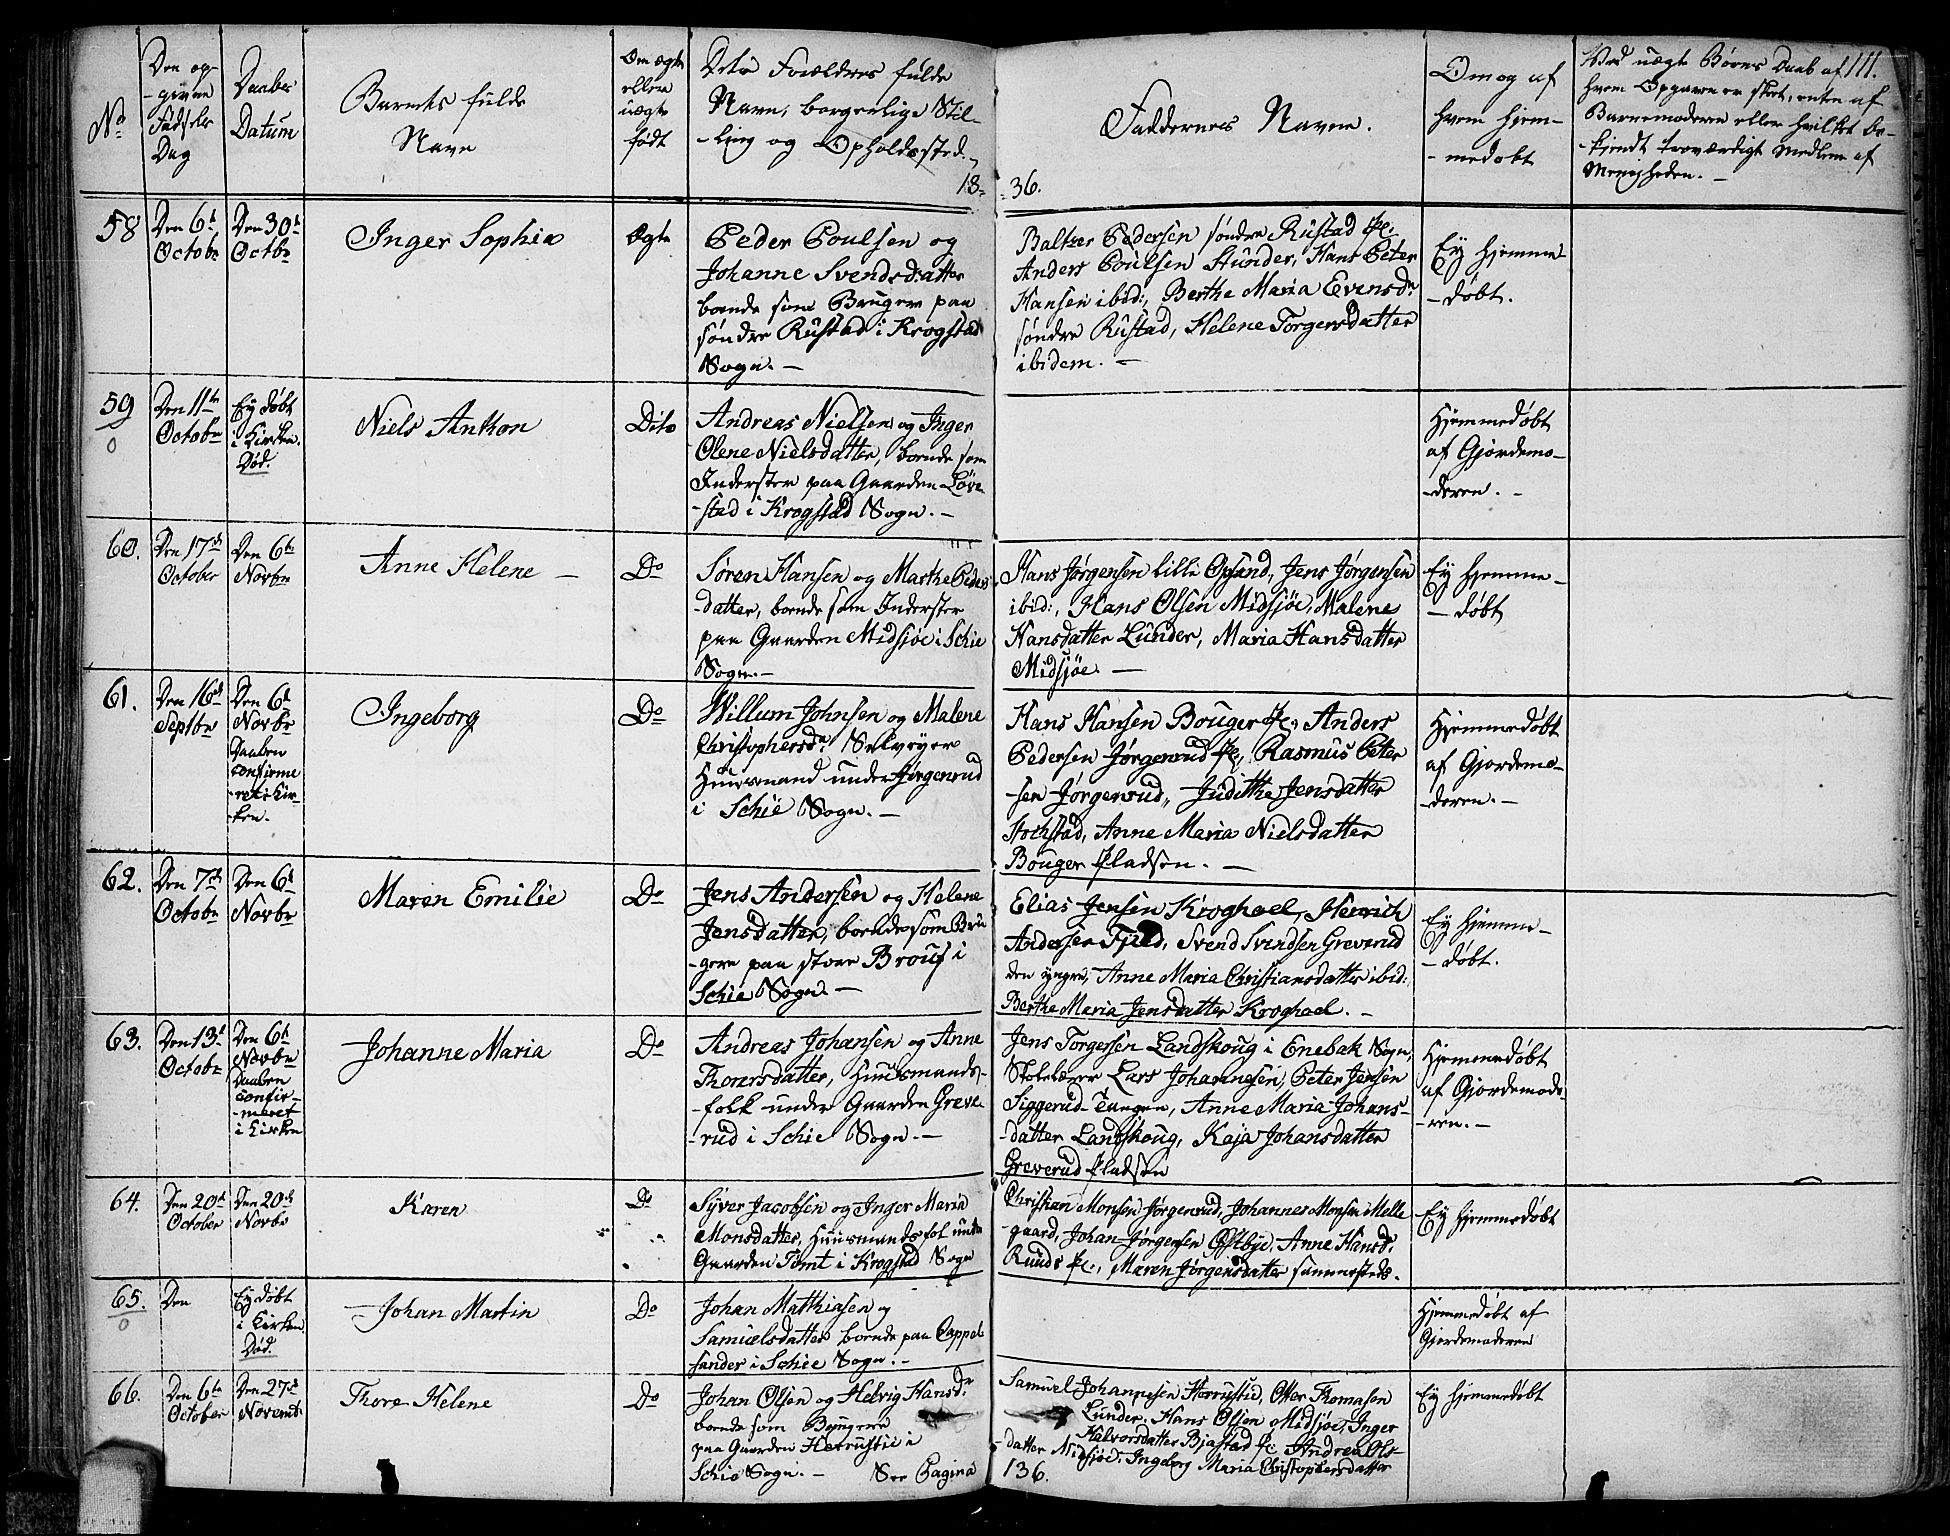 No
Den op-
-givne
Fødsels
Dag
Daabs
Datum
Barnets fulde
Navn
Om ægte
eller
uægte
født
Dets Forældres fulde
Navn, borgerlige Stil-
-ling og Opholdssted.
18-
-36.
Faddernes Navne.
Om og af
hvem hjem-
-medøbt
Ved uægte Børns Daab af
111.
hvem Opgaven er skeet, enten af
Barnemoderen eller hvilket be-
-kjendt troværdigt Medlem af
Menigheden. -
58
Den 6t
Octobr
Den 30t
Octbr
Inger Sophia
Ægte
Peder Poulsen og
Johanne Svendsdatter
boende som Bruger paa
søndre Rustad i Krogstad
Sogn. -
Baltzer Pedersen søndre Rustad Pl:
Anders Poulsen Stunder, Hans Peter
Hansen ibid:, Berthe Maria Evensdr
søndre Rustad, Helene Torgersdatter
ibidem. -
Ey hjemme
-døbt.
59
0
Den 11te
Octobr
Ey døbt
i Kirken.
Død.
Niels Anthon
Dito
Andreas Nielsen og Inger
Olene Nielsdatter, boende som
Inderster paa Gaarden Løve-
-stad i Krogstad Sogn. -
Hjemmedøbt
af Gjordemo-
-deren. -
60.
Den 17de
October
Den 6te
Novbr
Anne Helene -
Do
Søren Hansen og Marthe Peders
-datter, boende som Inderster
paa Gaarden Midsjøe i Schie
Sogn. -
Hans Jørgensen lille Opsand, Jens Jørgensen
ibid:, Hans Olsen Midsjøe, Malene
Hansdatter Lunder, Maria Hansdatter
Midsjøe. -
Ey hjemme-
-døbt
61.
Den 16de
Septbr
Den 6t
Novbr
Daaben
confirme
-ret i Kir-
-ken.
Ingeborg
Do
Willum Johnsen og Malene
Christophersdr. Selvejer
Huusmand under Jørgenrud
i Schie Sogn. -
Hans Hansen Bouger Pl:, Anders
Pedersen Jørgenrud Pl:, Rasmus Peter
-sen Jørgenrud, Judithe Jensdatter
Hochstad, Anne Maria Nielsdatter
Bouger Pladsen. -
Hjemmedøbt
af Gjordemo-
-deren. -
62.
Den 7de
Octobr
Den 6t
Novbr
Maren Emilie
Do
Jens Andersen og Helene
Jensdatter, boende som Bru
-gere paa store Brouf i
Schie Sogn. -
Elias Jensen Kroghoel, Henrich
Andersen Fjeld, Svend Svendsen Greverud
den yngre, Anne Maria Christiansdatter ibid:
Berthe Maria Jensdatter Kroghoel. -
Ey hjemme-
-døbt.
63.
Den 13t
Octobr
Den 6t
Novbr
Daaben
confir-
-meret
i Kirken
Johanne Maria
Do
Andreas Johansen og Anne
Thorersdatter, Huusmands-
-folk under Gaarden Greve-
-rud i Schie Sogn. -
Jens Torgersen Landskoug i Enebak Sogn,
Skolelærer Lars Johannesen, Peter Jensen
Siggerud-Tangen, Anne Maria Johans-
-datter Landskoug, Kaja Johansdatter
Greverud Pladsen
Hjemmedøbt
af Gjordemode-
-ren. -
64.
Den 20de
October
Den 20de
Novbr
Karen
Do
Syver Jacobsen og Inger Maria
Monsdatter, Huusmandsfolk under
Gaarden Tomt i Krogstad Sogn
Christian Monsen Jørgenrud, Johannes Monsen Melle
-gaard, Johan Jørgensen Østbye, Anne Hansd.
Ruuds Pl:, Maren Jørgensdatter sammesteds.
Ey hjemmedøbt
65.
0
Den
Ey døbt
i Kirken
Død.
Johan Martin
Do
Johan Matthiasen og
Samuelsdatter boende paa Cappel
sander i Schie Sogn. -
Hjemmedøbt af
Gjordemoderen
66.
Den 6te
October
Den 27de
Novemb.
Thore Helene
Do
Johan Olsen og Helvig Hansdr
boende som Bruger
paa Gaarden Herrustie i
Schie Sogn. - See Pagina
136.
Samuel Johannesen Herrustie, Otter Thomasen
Lunder, Hans Olsen Midsjøe, Inger
Halvorsdatter Bjastad Pl:, Andrea Ols-
-datter Midsjøe, Ingeborg Maria Christophersdatter
Ey hjemmedøbt